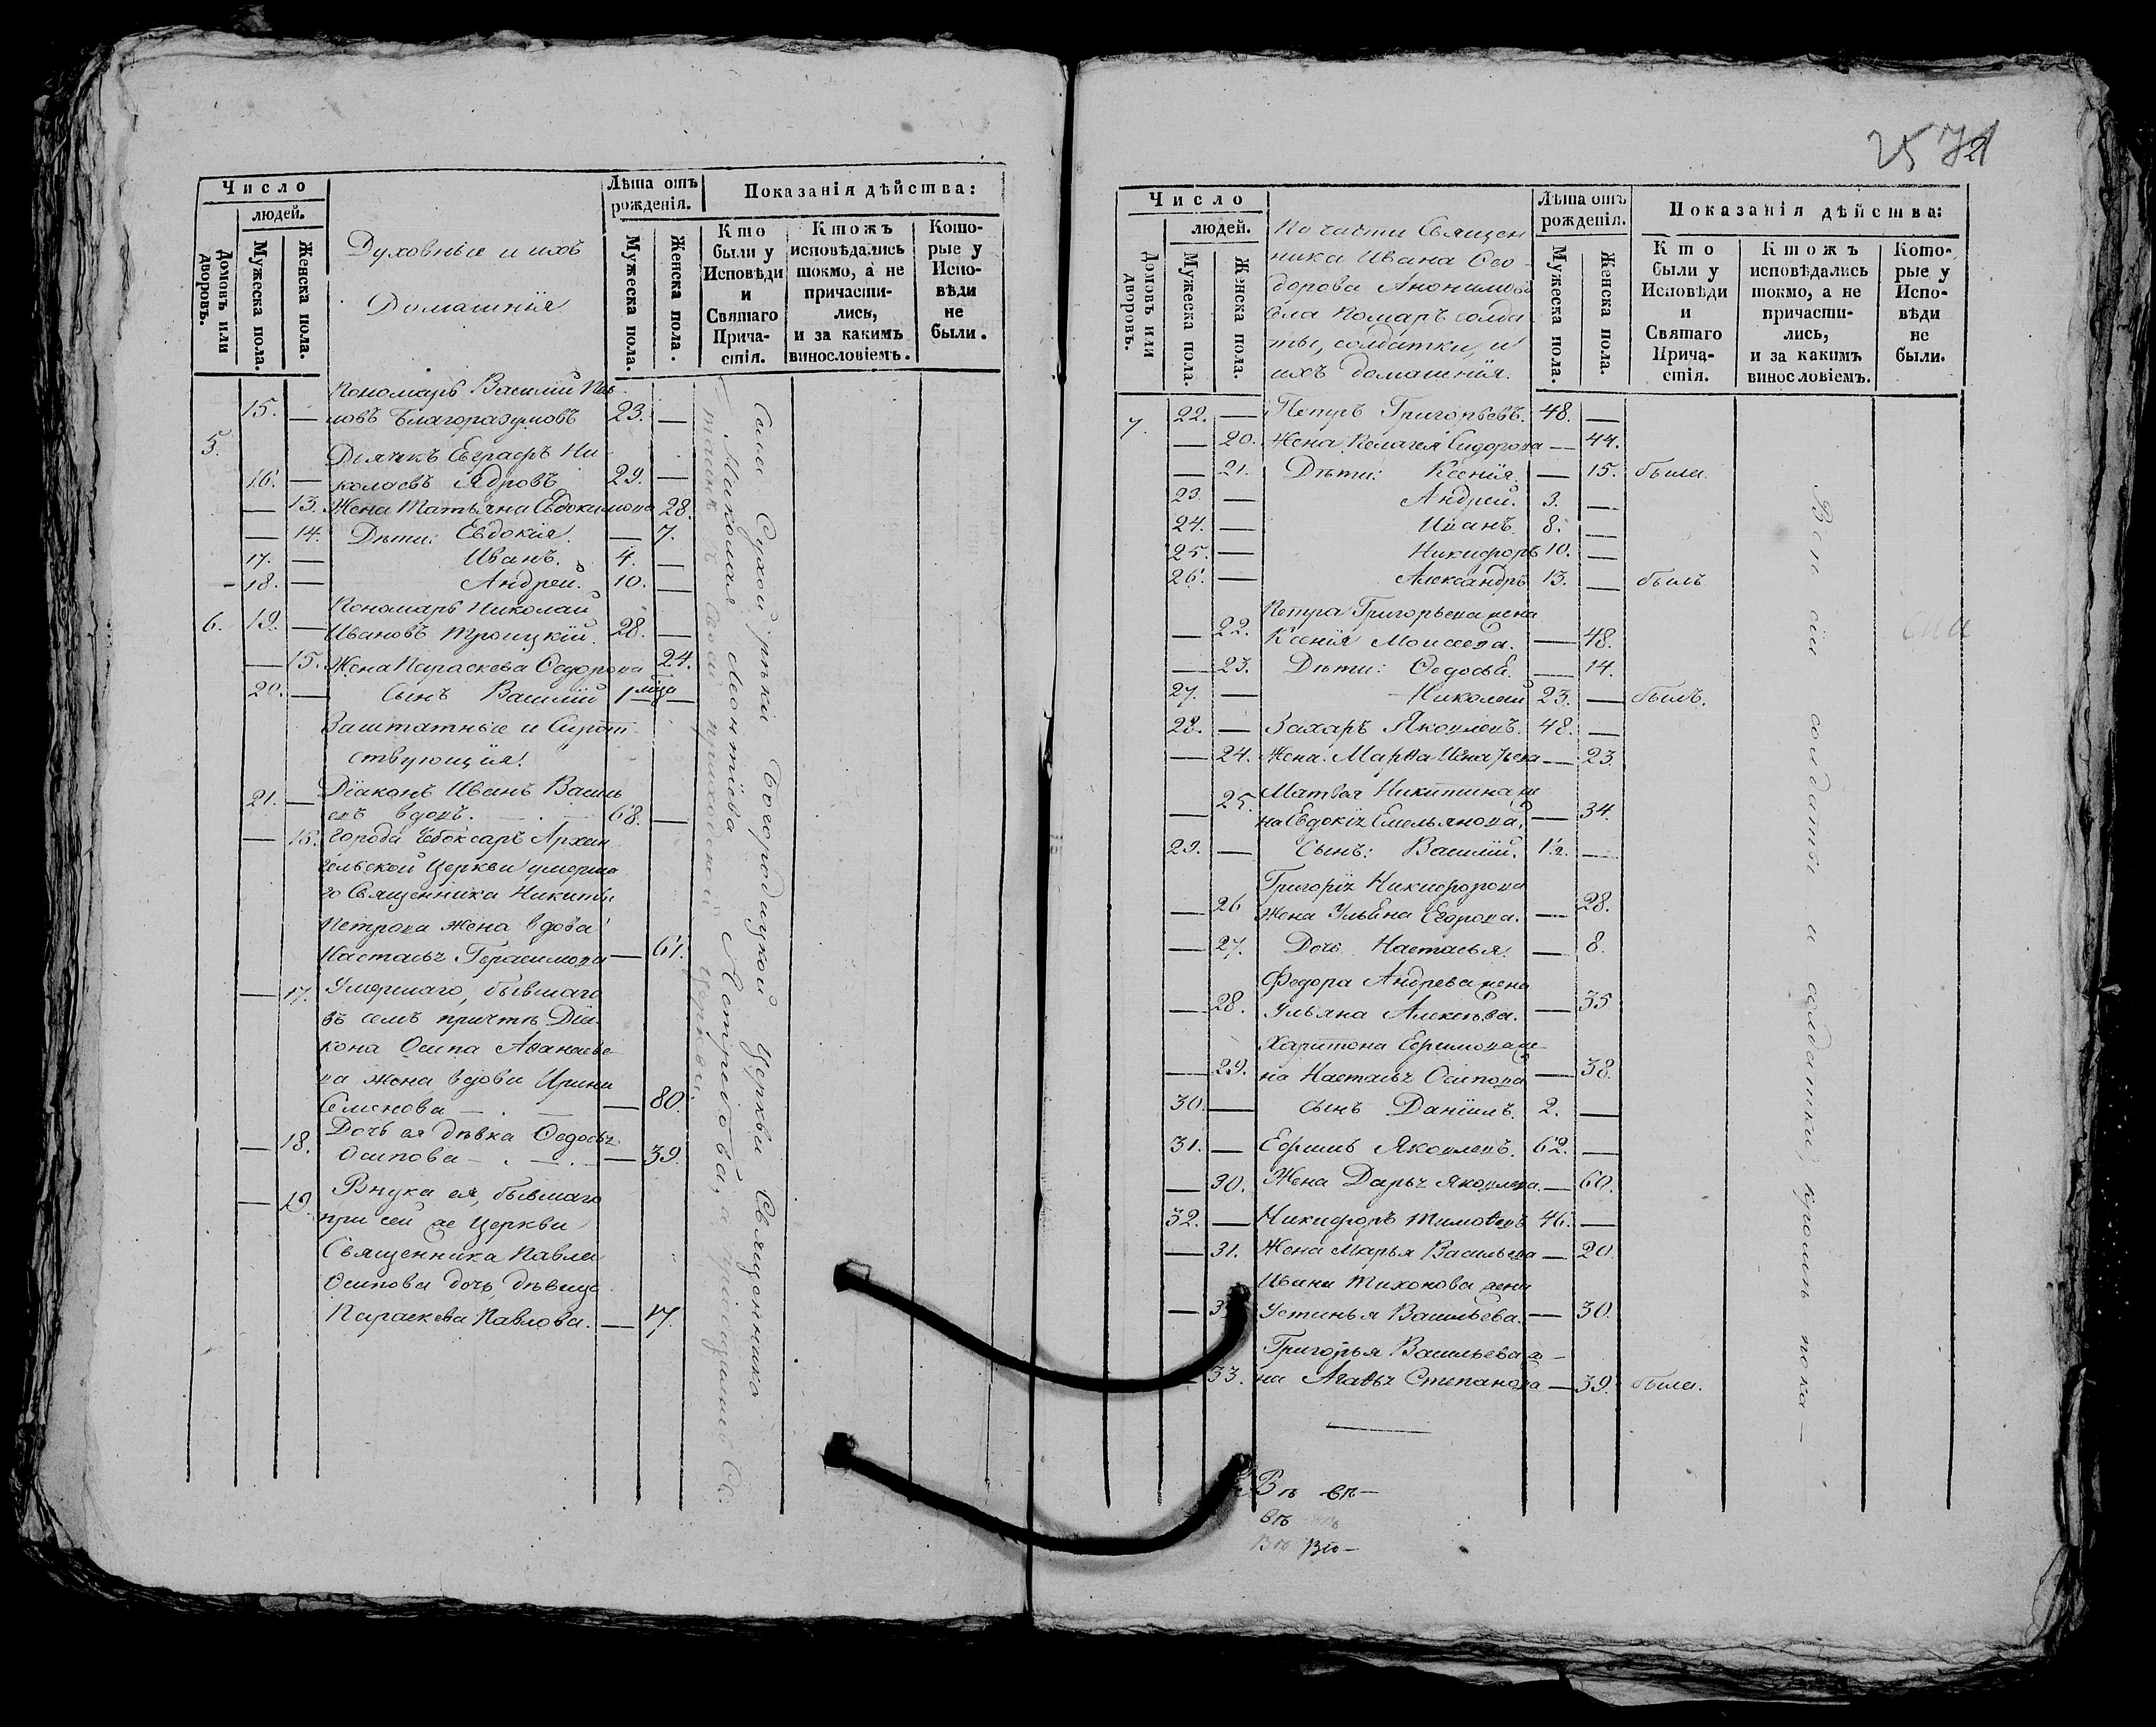 Число
людей.
Домовъ или дворовъ.
Мужеска пола.
Женска пола.
Духовные и ихъ
Домашнія
Лѣта отъ рожденія.
Мужеска пола.
Женска пола.
Показанія дѣйства:
Кто были у Исповѣди и Святаго Прича-стія.
Ктожъ исповѣдались токмо, а не причасти-лись, и за какимъ винословіемъ.
Кото-рые у Испо-вѣди не были.
Пономарь Василий
15. — новъ Благоразумовъ 23. —
5.
Дьячикъ Евграфъ Ни
16. — колаевъ Ядровъ 29. —
— 13. Жена Татьяна Евдокимова 28.
— 14. Дѣти: Евдокія. — 7.
17. — Иванъ. 4. —
18. — Андрей. 10. —
Пономарь Николай
6. 19. — Ивановъ Троицкій. 28. —
— 15. Жена Параскева Ѳедорова 24.
20. — Сынъ Василій 1 мца —
Заштатные и Сирот
ствующія:
Діаконъ Иванъ Василь
21. — евъ вдовъ. 68. —
— 16. города Чебоксаръ Архан
гельской Церкви умерша
го Священника Никиты
Петрова жена вдова
Настасья Герасимова — 61.
— 17. Умершаго, бывшаго
въ семъ причтѣ Діа
кона Осипа Аѳанасье
ва жена вдова Ирина
Семенова — 80.
Дочь ея дѣвка Ѳедосья
— 18. Осипова — 39.
— 19. Внука ея, бывшаго
при сей же Церкви
Священника Павла
Осипова дочь дѣвица
Параскева Павлова. — 17.
Села Сухой рѣчки Богородицкой Церкви Священника
Николая Леонтіева
своей приходской Церкви
2571
Число
людей.
Домовъ или дворовъ.
Мужеска пола.
Женска пола.
По части Священ
ника Ивана Ѳео
дорова
села Помаръ солда
ты, солдатки, и
ихъ домашнія.
Лѣта отъ рожденія.
Мужеска пола.
Женска пола.
Показанія дѣйства:
Кто были у Исповѣди и Святаго Прича-стія.
Ктожъ исповѣдались токмо, а не причасти-лись, и за какимъ винословіемъ.
Кото-рые у Испо-вѣди не были.
7. 22. — Петръ Григорьевъ. 48. —
— 20. Жена Пелагея Сидорова — 44.
— 21. Дѣти: Ксенія. — 15. была.
23. — Андрей. 3. —
24. — Иванъ. 8. —
25. — Никифоръ 10. —
26. — Александръ 13. — былъ
Петра Григорьева жена
— 22. Ксенія Моисеева. — 48.
— 23. Дѣти: Ѳедосья. — 14.
27. — Николай 23. — былъ.
28. — Захаръ Яковлевъ. 48. —
— 24. Жена Марѳа — 23.
Матвея Никитина же
— 25. на Евдокія Емельянова. — 34.
29. — Сынъ: Василій. 1½. —
Григорія Никифорова
— 26 жена Ульяна Егорова. — 28.
— 27. Дочь Настасья. — 8.
Федора Андрева жена
— 28. Ульяна Алексѣева. — 35
Харитона Ефимова же-
— 29. на Настасья Осипова — 38.
30. — сынъ Даніилъ. 2. —
31. — Ефимъ Яковлевъ. 62. —
— 30. Жена Дарья Яковлева. — 60.
32. — Никифоръ Тимоѳевъ 46. —
— 31. Жена Марья Васильева — 20.
Ивана Тихонова жена
— 3 Устинья Васильева. — 30.
Григорья Васильева же-
— 33. на Агаѳья Степанова — 39. была.
Всѣ сіи солдаты и солдатки, кромѣ пока —
Въ въ—
въ